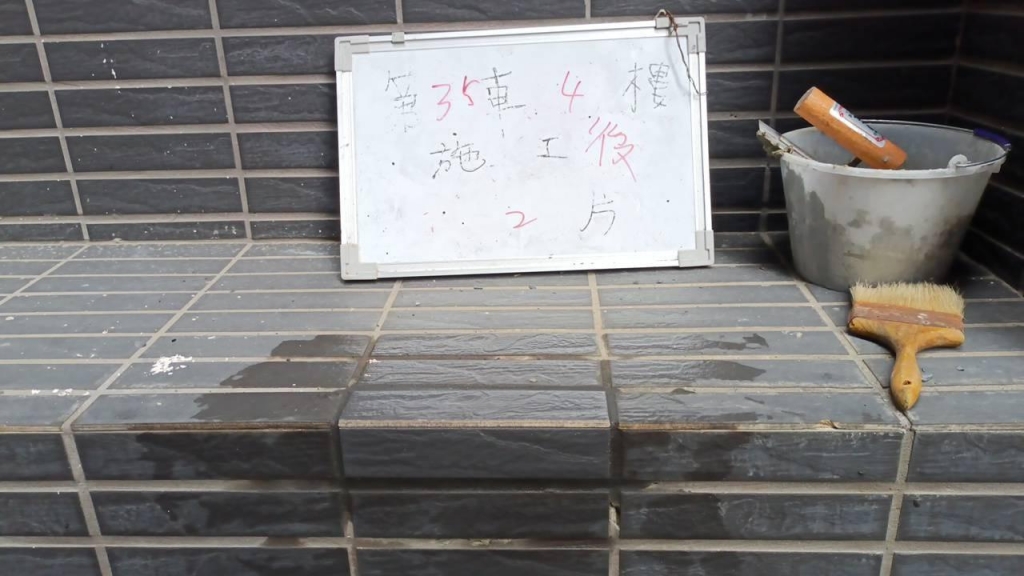 第35車4樓
施工後
2片